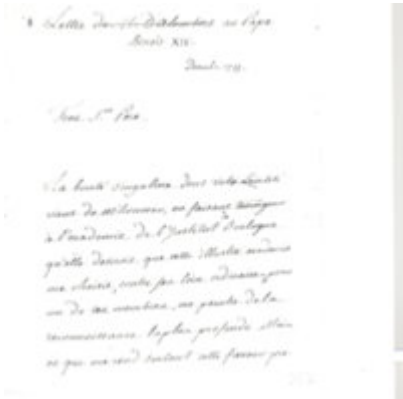 Lettre de M. d'Alembert au Pape
Benoit XIV.
Très St. Père
La bonté singulière dont votre Sainteté
vient de m'honorer, en faisant
à l'academie de l'Institut de Bologne
qu'elle desiroit que cette illustre académie
me choisit, contre son loix ordinaire, pour
un de ses membres, me penetre de la
reconnoissance la plus profonde. Mais
ce qui me rend surtout cette faveur